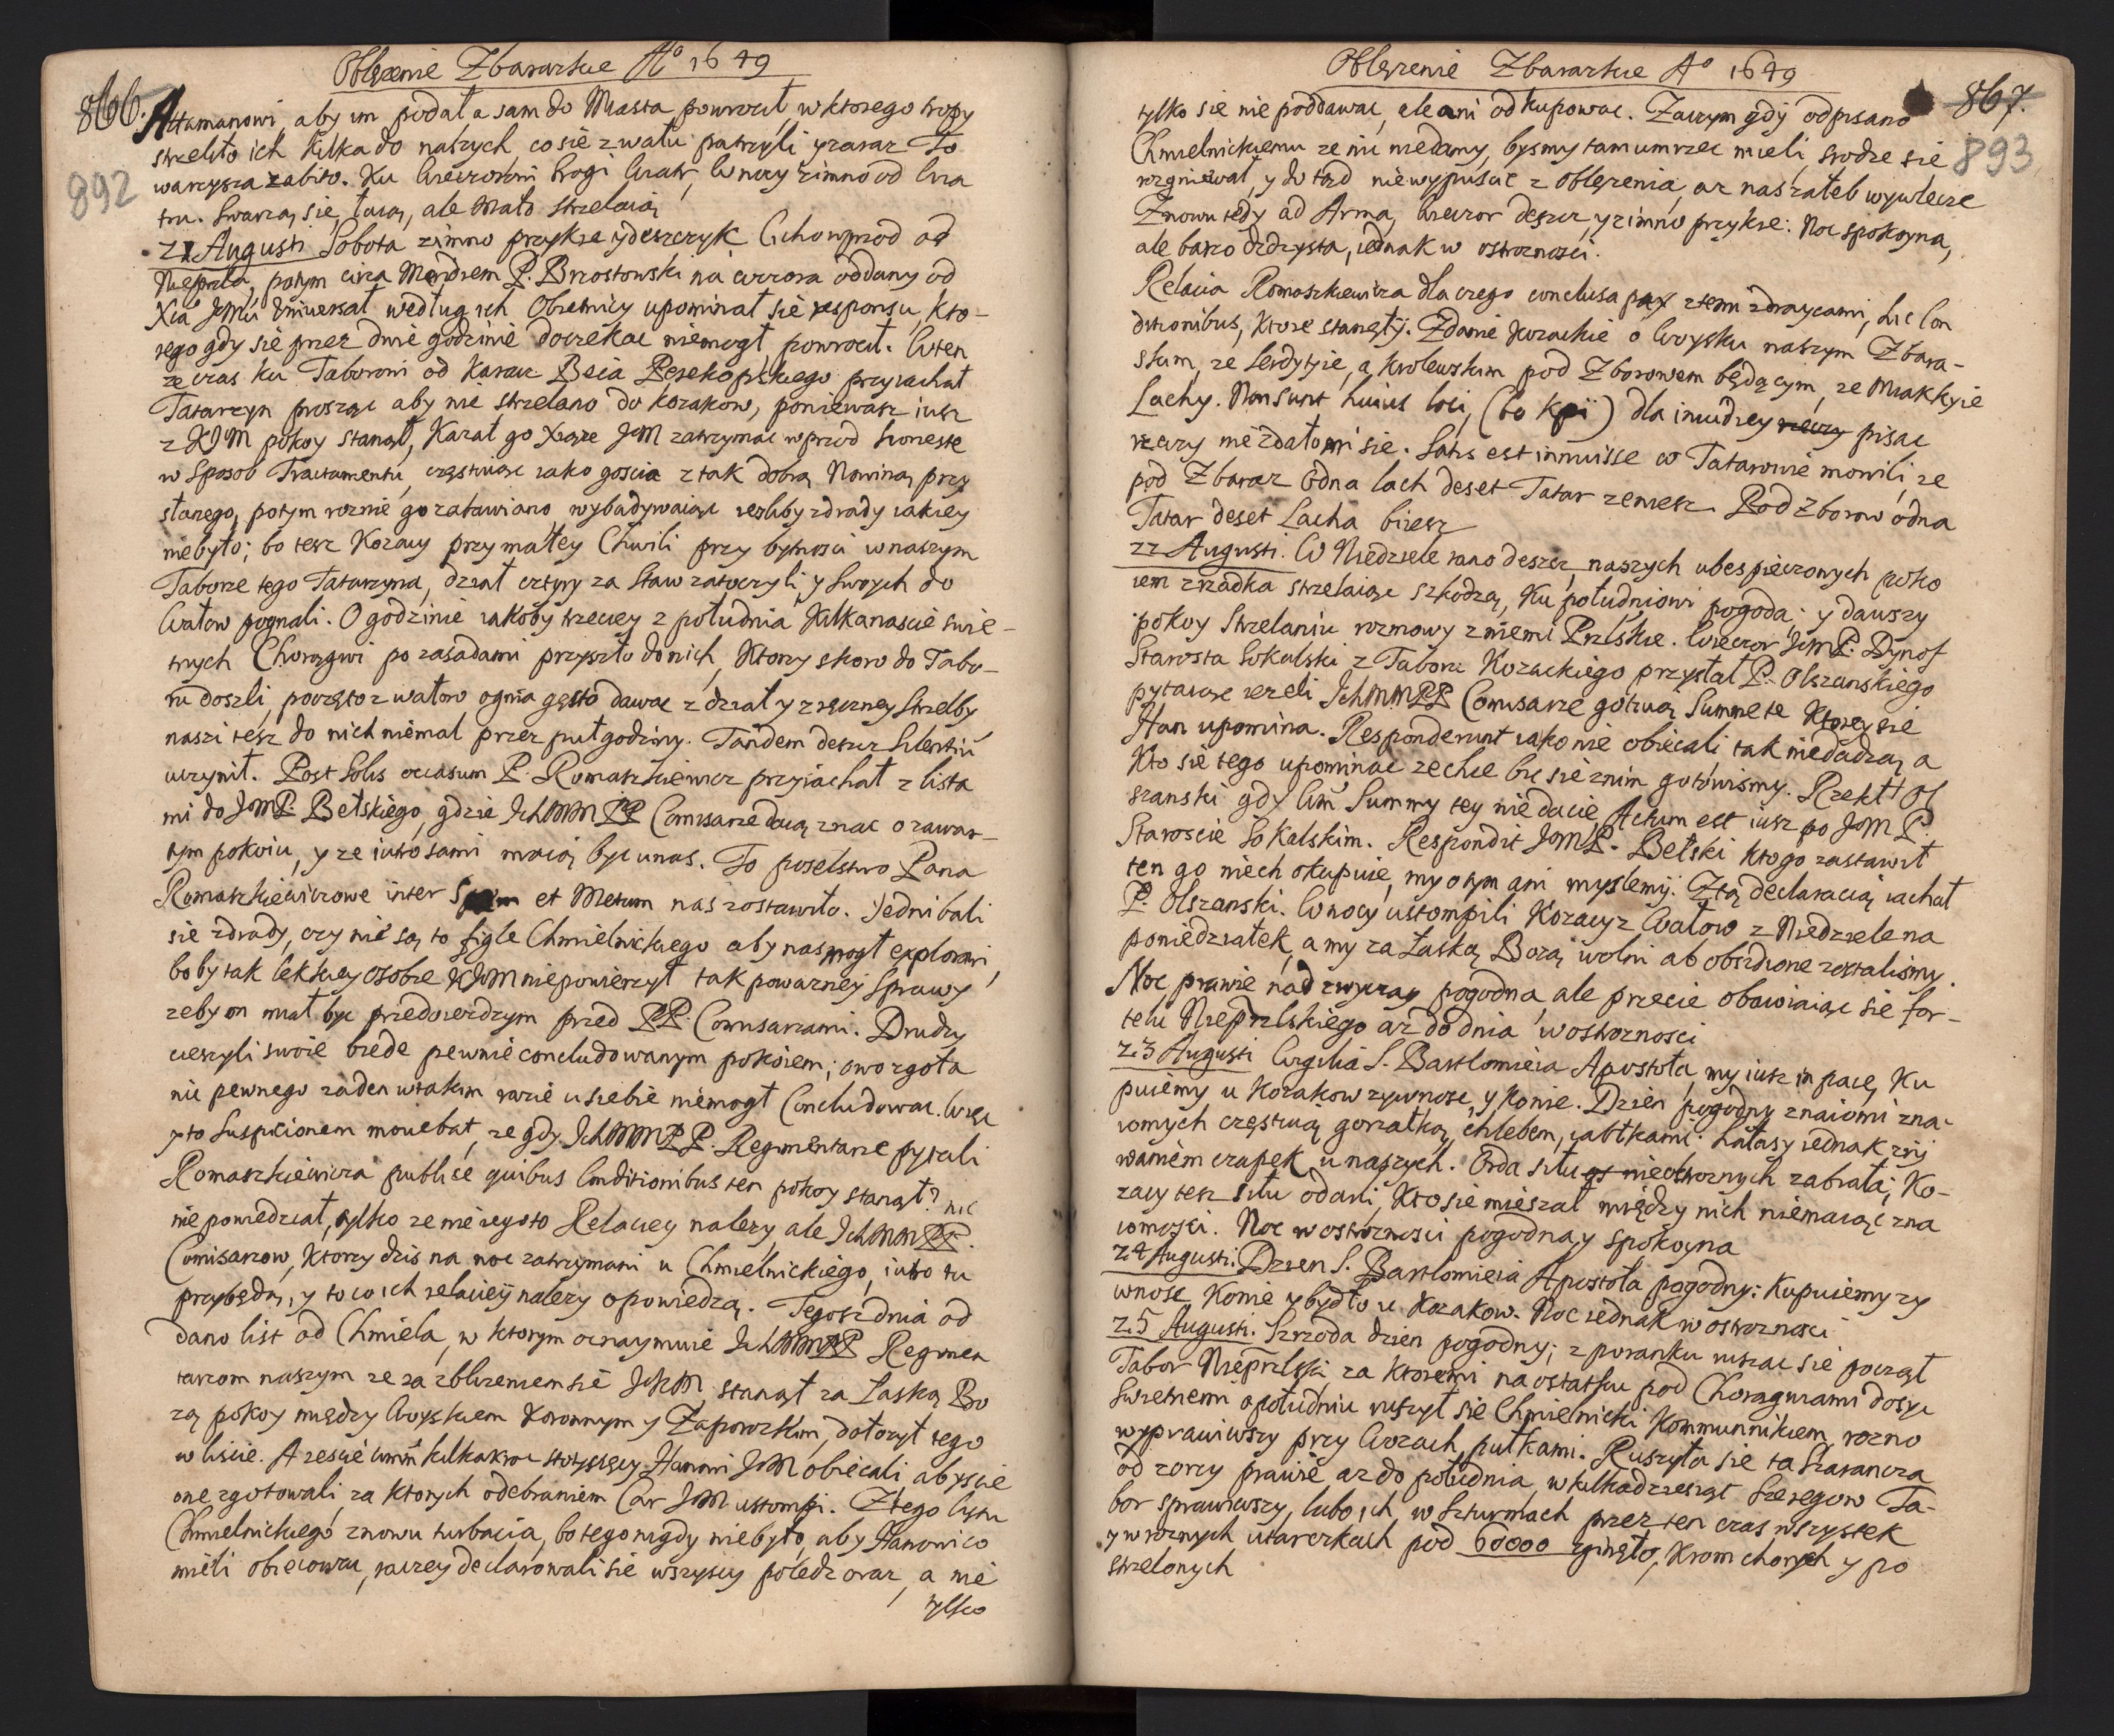 Oblęzenie Zbaraskie Aº 1649
866.
892
Attamanowi, aby im podał a sam do Miasta powrocił, w ktorego tropy
strzeliło ich kilka do naszych co się z wału patrzyli y zaraz To
warzysza zabito. Ku Wieczorowi srogi Wiatr, W nocy zimno od Wia
tru. Swarzą się, łaią, ale Mało strzelaią
21 Augusti Sobota zimno przykre y deszczyk Cicho wprzod od
Nieprzla, potym circa Meridiem P. Brzostowski na wczora oddany od
Xcia JeMci Uniwersał według ich Obietnicy upominał się responsu, Kto-
rego gdy się przez dwie godzinie doczekac niemogł, powrocił. W ten
ze czas ku Taborowi od Karacz Beia Perekopskiego przyiachał
Tatarzyn prosząc aby nie strzelano do kozakow, poniewasz iusz
z KJM pokoy stanął, Kazał go Xiąze JeM zatrzymac wprzod honeste
w Sposob Tractamentu, częstuiąc iako goscia z tak dobrą Nowiną przy
słanego, potym roznie go zabawiano wybadywaiąc iezliby zdrady iakiey
niebyło; bo tesz Kozacy przy małey Chwili przy bytnosci w naszym
Taborze tego Tatarzyna, dział cztyry za Staw zatoczyli y Swoych do
Wałow pognali. O godzinie iakoby trzeciey z południa Kilkanascie swie-
tnych Chorągwi po zasadami przyszło do nich, Ktorzy skoro do Tabo-
ru doszli, poczęto z wałow ognia gęsto dawac z dział y z ręczney Strzelby
naszi tesz do nich niemal przez puł godziny. Tandem deszcz Silentiu
uczynił. Post Solis occasum P. Romaszkiewicz przyiachał z lista
mi do JeMP. Bełskiego, gdzie IchMM PP Comisarze daią znac o zawar-
tym pokoiu, y ze iutro sami maią byc u nas. To poselstwo Pana
Romaszkiewiczowe inter Spem et Metum nas zostawiło. Jedni bali
się zdrady, czy nie są to figle Chmielnickiego aby nas mogł explorari,
bo by tak lekkiey osobie KJM niepowierzył tak powazney Sprawy
zeby on miał byc przedwierdzym przed PP. Comisarzami. Drudzy
cieszyli swoię biedę pewnie concludowanym pokoiem; owo zgoła
nic pewnego zaden w takim razie u siebie niemogł Concludowac. Więc
y to Suspicionem mouebat, ze gdy IchMM PP. Regimentarze pytali
Romaszkiewicza publice quibus Conditionibus ten pokoy stanął? nic
nie powiedział, tylko ze nie iego to Relaciey nalezy, ale IchMM PP.
Comisarzow, Ktorzy dzis na noc zatrzymani u Chmielnickiego, iutro tu
przybędą, y to co ich relaciey nalezy opowiedzą. Tegosz dnia od
dano list od Chmiela, w ktorym oznaymuie IchMM PP Regimen
tarzom naszym ze za zblizeniem się JKM, stanął za Łaską Bo
zą pokoy między Woyskiem Koronnym y Zaporozkim, dołozył tego
w liscie. A zescie Wm kilkakroc stotysięcy Hanowi JeM obiecali abyscie
one zgotowali, za ktorych odebraniem Car JeM ustompi. Z tego listu
Chmielnickiego znowu turbacia, bo tego nigdy niebyło, aby Hanowi co
mieli obiecowac, raczey declarowali się wszyscy poledz oraz, a nie
tylko
Oblęzenie Zbaraskie Aº 1649
867.
893
tylko się nie poddawac, ale ani odkupowac. Zaczym gdy odpisano
Chmielnickiemu ze mu niedamy, bysmy tam umrzec mieli, srodze się
rozgniewał, y do tąd niewypuscic z oblęzenia, az nas załeb wywlecze
Znowu tedy ad Arma, Wieczor deszcz, y zimno przykre: Noc spokoyna,
ale barzo dzdzysta, iednak w ostroznosci.
Relacia Romaszkiewicza dlaczego conclusa pax z temi zdraycami, hic Con
ditionibus, Ktore stanęły. Zdanie Kozackie o Woysku naszym Zbara-
skim, ze Serdytyie, a krolewskim pod Zborowem będącym, ze Miakkyie
Lachy. Non sunt huius loci, (bo kpi) dla inudzey rzeczy pisac
rzeczy niezdało mi się. Satis est innuisse co Tatarowie mowili, ze
pod Zbaraz Odna lach deset Tatar zeniesz. Pod Zborow odna
Tatar deset Lacha bieresz
22 Augusti. W Niedziele rano deszcz, naszych ubespieczonych poko
iem zrzadka strzelaiąc szkodzą, Ku południowi pogoda; y dawszy
pokoy Strzelaniu rozmowy z niemi Przlskie. Wieczor JeMP. Dynof
Starosta Sokalski z Taboru Kozackiego przysłał P. Olszanskiego
pytaiąc iezeli IchMM PP Comisarze gotuią Summe te Ktorey się
Han upomina. Responderunt iako nie obiecali tak niedadzą, a
Kto się tego upominac zechce bic się z nim gotowismy. Rzekł Ol
szanski gdy Wm Summy tey nie dacie, Actum est iusz po JeM P.
Staroscie Sokalskim. Respondit JeMP. Bełski kto go zastawił
ten go niech okupuie, my o tym ani myslemy. Z tą declaracią iachał
P. Olszanski. W nocy ustompili Kozacy z Wałow z Niedziele na
poniedziałek, a my za Łaską Bozą wolni ab obsidione zostalismy.
Noc prawie nad zwyczay pogodna, ale przecie obawiaiąc się for-
telu Nieprzlskiego az do dnia w ostroznosci
23 Augusti Wigilia S. Bartłomieia Apostoła, my iusz in pace, Ku
puiemy u Kozakow zywnosc, y konie. Dzien pogodny znaiomi zna-
iomych częstuią gorzałką, chlebem, iabłkami: hałasy iednak zry
waniem czapek u naszych. Orda siłu nieostroznych zabrała; Ko-
zacy tesz siłu odarli, Kto się mieszał między nich niemaiąc zna
iomosci. Noc w ostroznosci pogodna y spokoyna
24 Augusti. Dzien S. Bartłomieia Apostoła pogodny: Kupuiemy zy
wnosc Konie y bydło u Kozakow. Noc iednak w ostroznosci
25 Augusti. Srzoda dzien pogodny; z poranku ruszac się począł
Tabor Nieprzlski za ktoremi na ostatku pod Chorągwiami dosyc
swietnemi o południu ruszył się Chmielnicki Kommunnikiem, rozno
wyprawiwszy przy Wozach pułkami. Ruszyła się ta Szarancza
od zorzy prawie az do południa, w kilkadziesiąt Szeregow Ta-
bor sprawiwszy, lubo ich, w Szturmach przez ten czas wszystek
y w roznych utarczkach pod 60000 zginęło, krom chorych y po
strzelonych